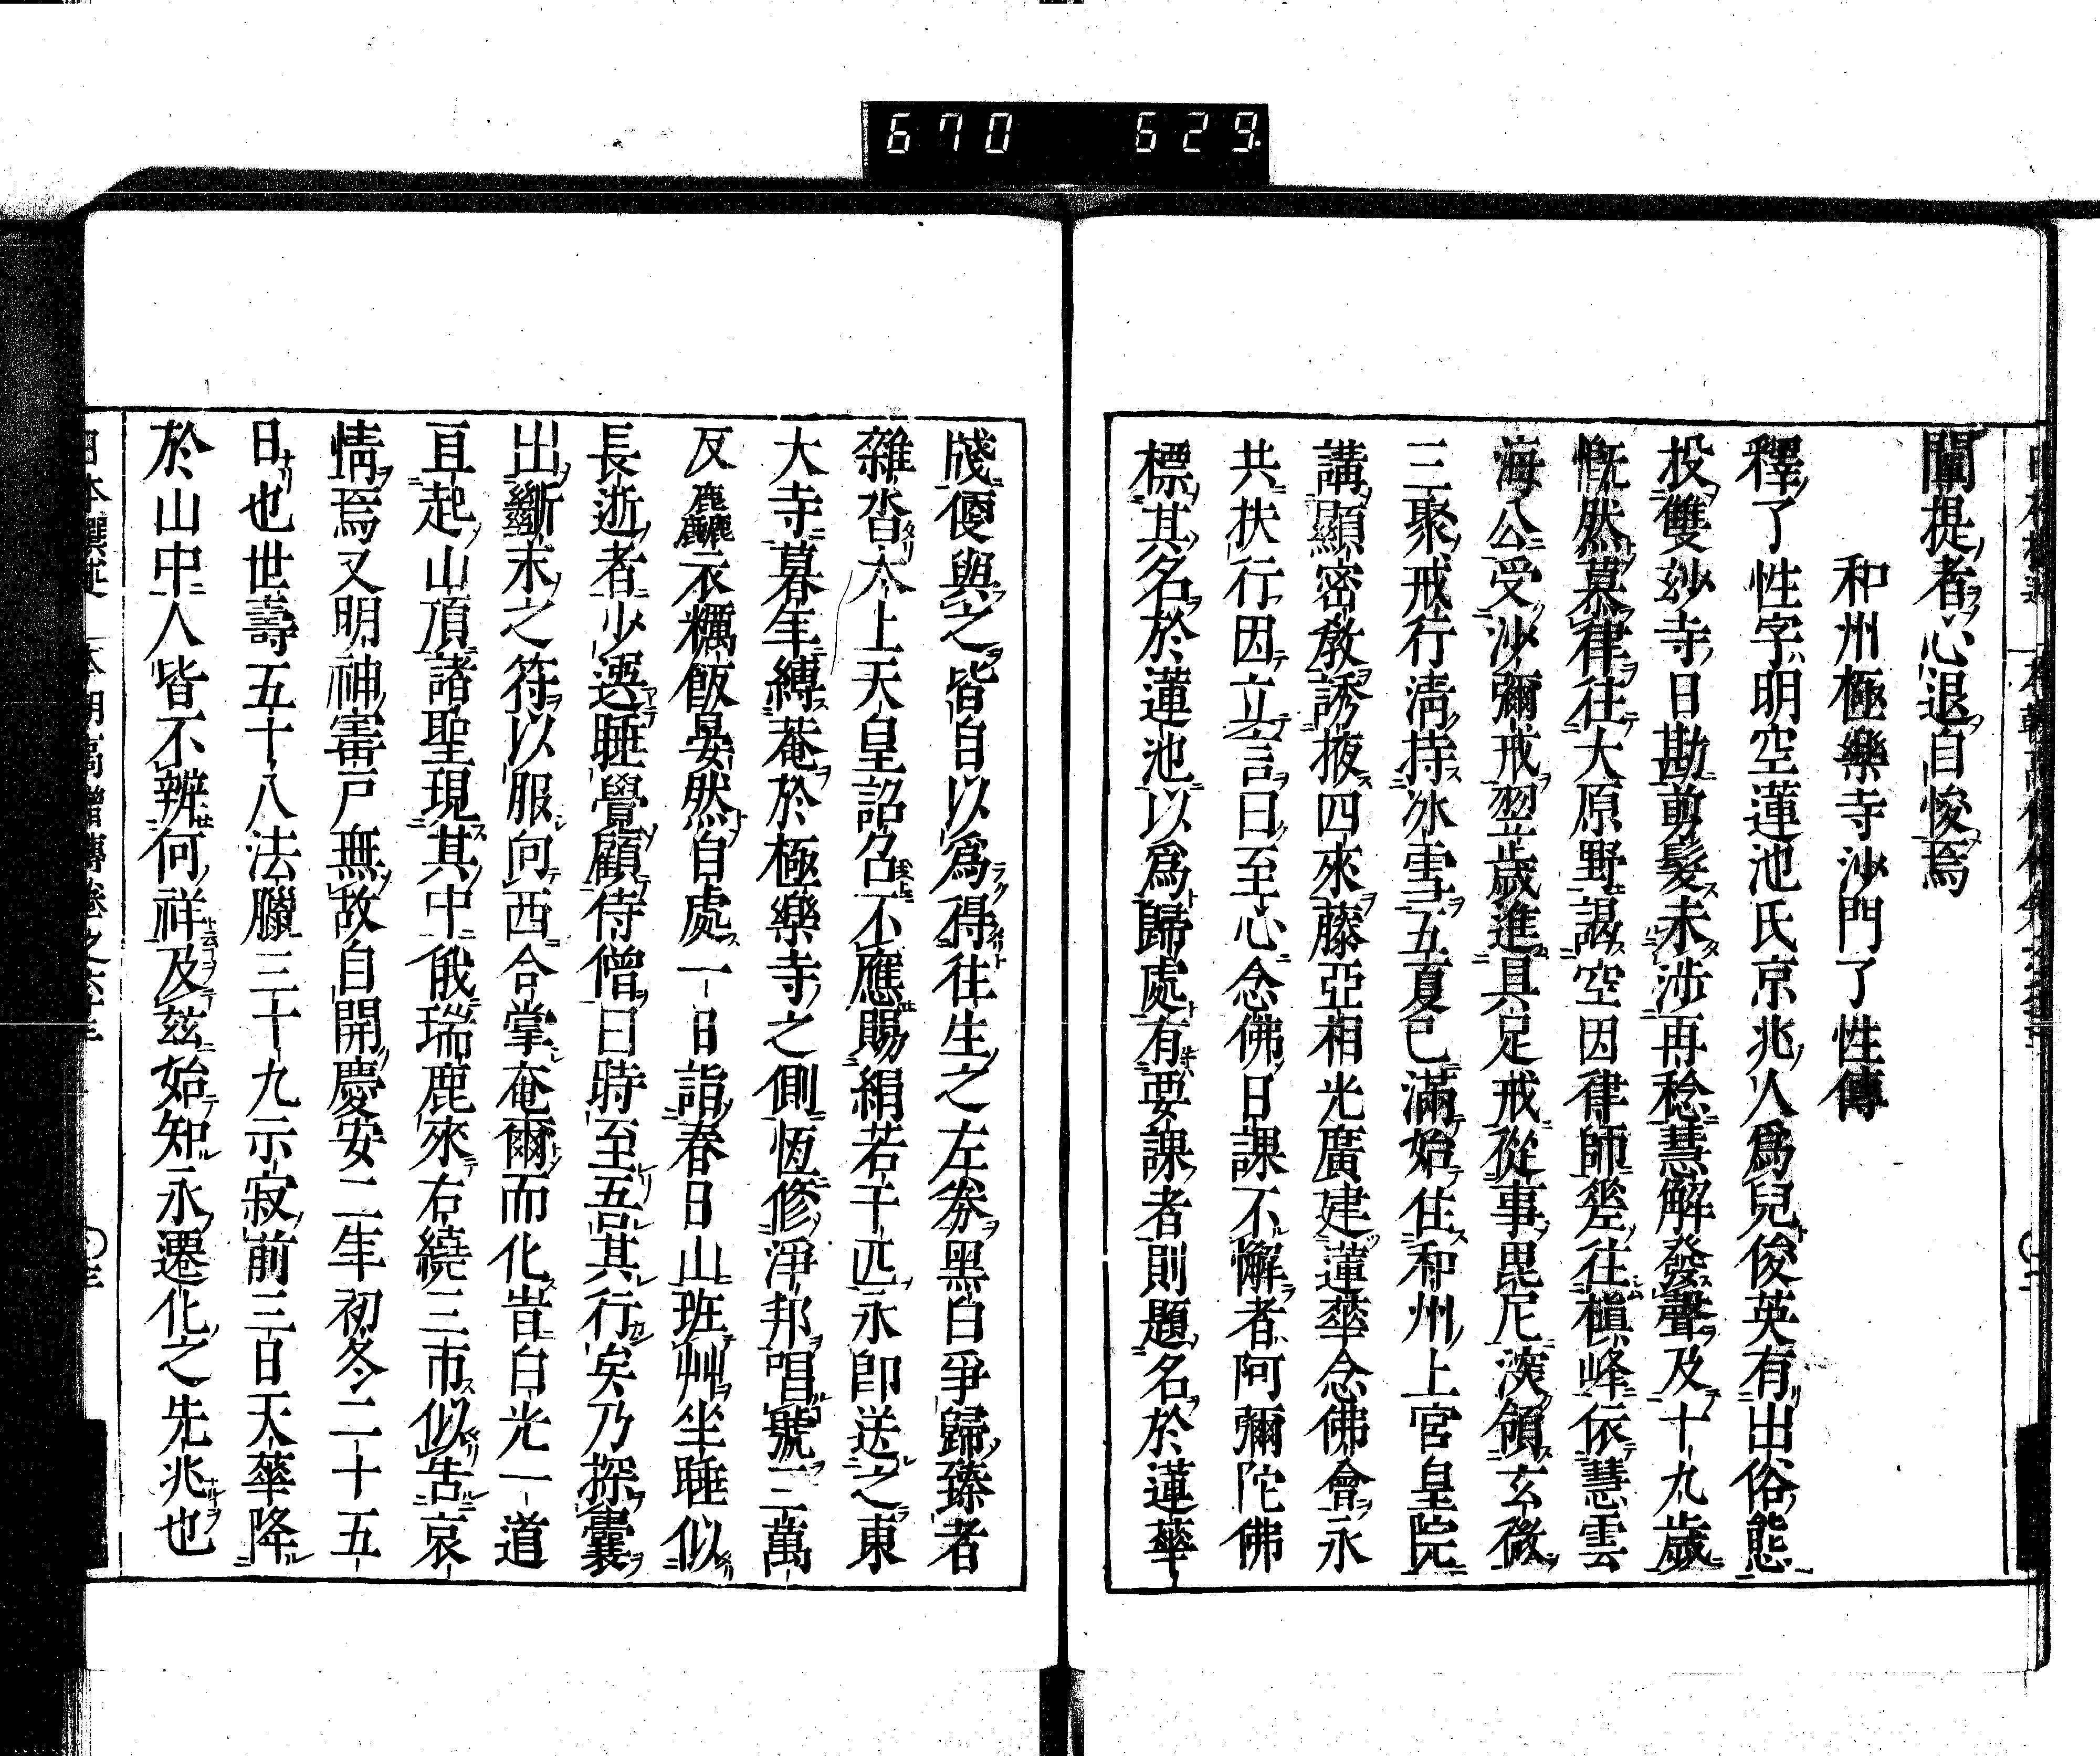 670 629
闡提者心退自悛焉
和州極樂寺沙門了性傳
釋了性字明空蓮池氏京兆人爲兒俊英有出俗態
投雙玅寺日勘剪髮未涉再稔慧解發聲及十九歲
慨然慕律往大原野謁空因律師蹉往槇峰依慧雲
海公受沙彌戒翌歲進具足戒從事毘尼深領玄微
三聚戒行淸持氷雪五夏已滿始住和州上宮皇院
講顯密敎誘掖四來藤亞相光廣建蓮華念佛會永
共扶行因立言曰至心念佛日課不懈者阿彌陀佛
標其名於蓮池以爲歸處有要課者則題名於蓮華
牋便與之皆自以爲得往生之左券黑白爭歸臻者
雜沓太上天皇詔召不應賜絹若干匹永卽送之東
大寺暮年縛菴於極樂寺之側恆修淨邦唱號三萬
反麤衣糲飯晏然自處一日詣春日山班艸坐睡似
長逝者少選睡覺顧侍僧曰時至吾其行矣乃探囊
出斷末之符以服向西合掌奄爾而化昔白光一道
亘起山頂諸聖現其中俄瑞鹿來右繞三帀似告哀
情焉又明神寶戶無故自開慶安二年初冬二十五
日也世壽五十八法臘三十九示寂前三日天華降
於山中人皆不辨何祥及茲始知永遷化之先兆也
日本撰述 本朝高僧傳卷之六十三